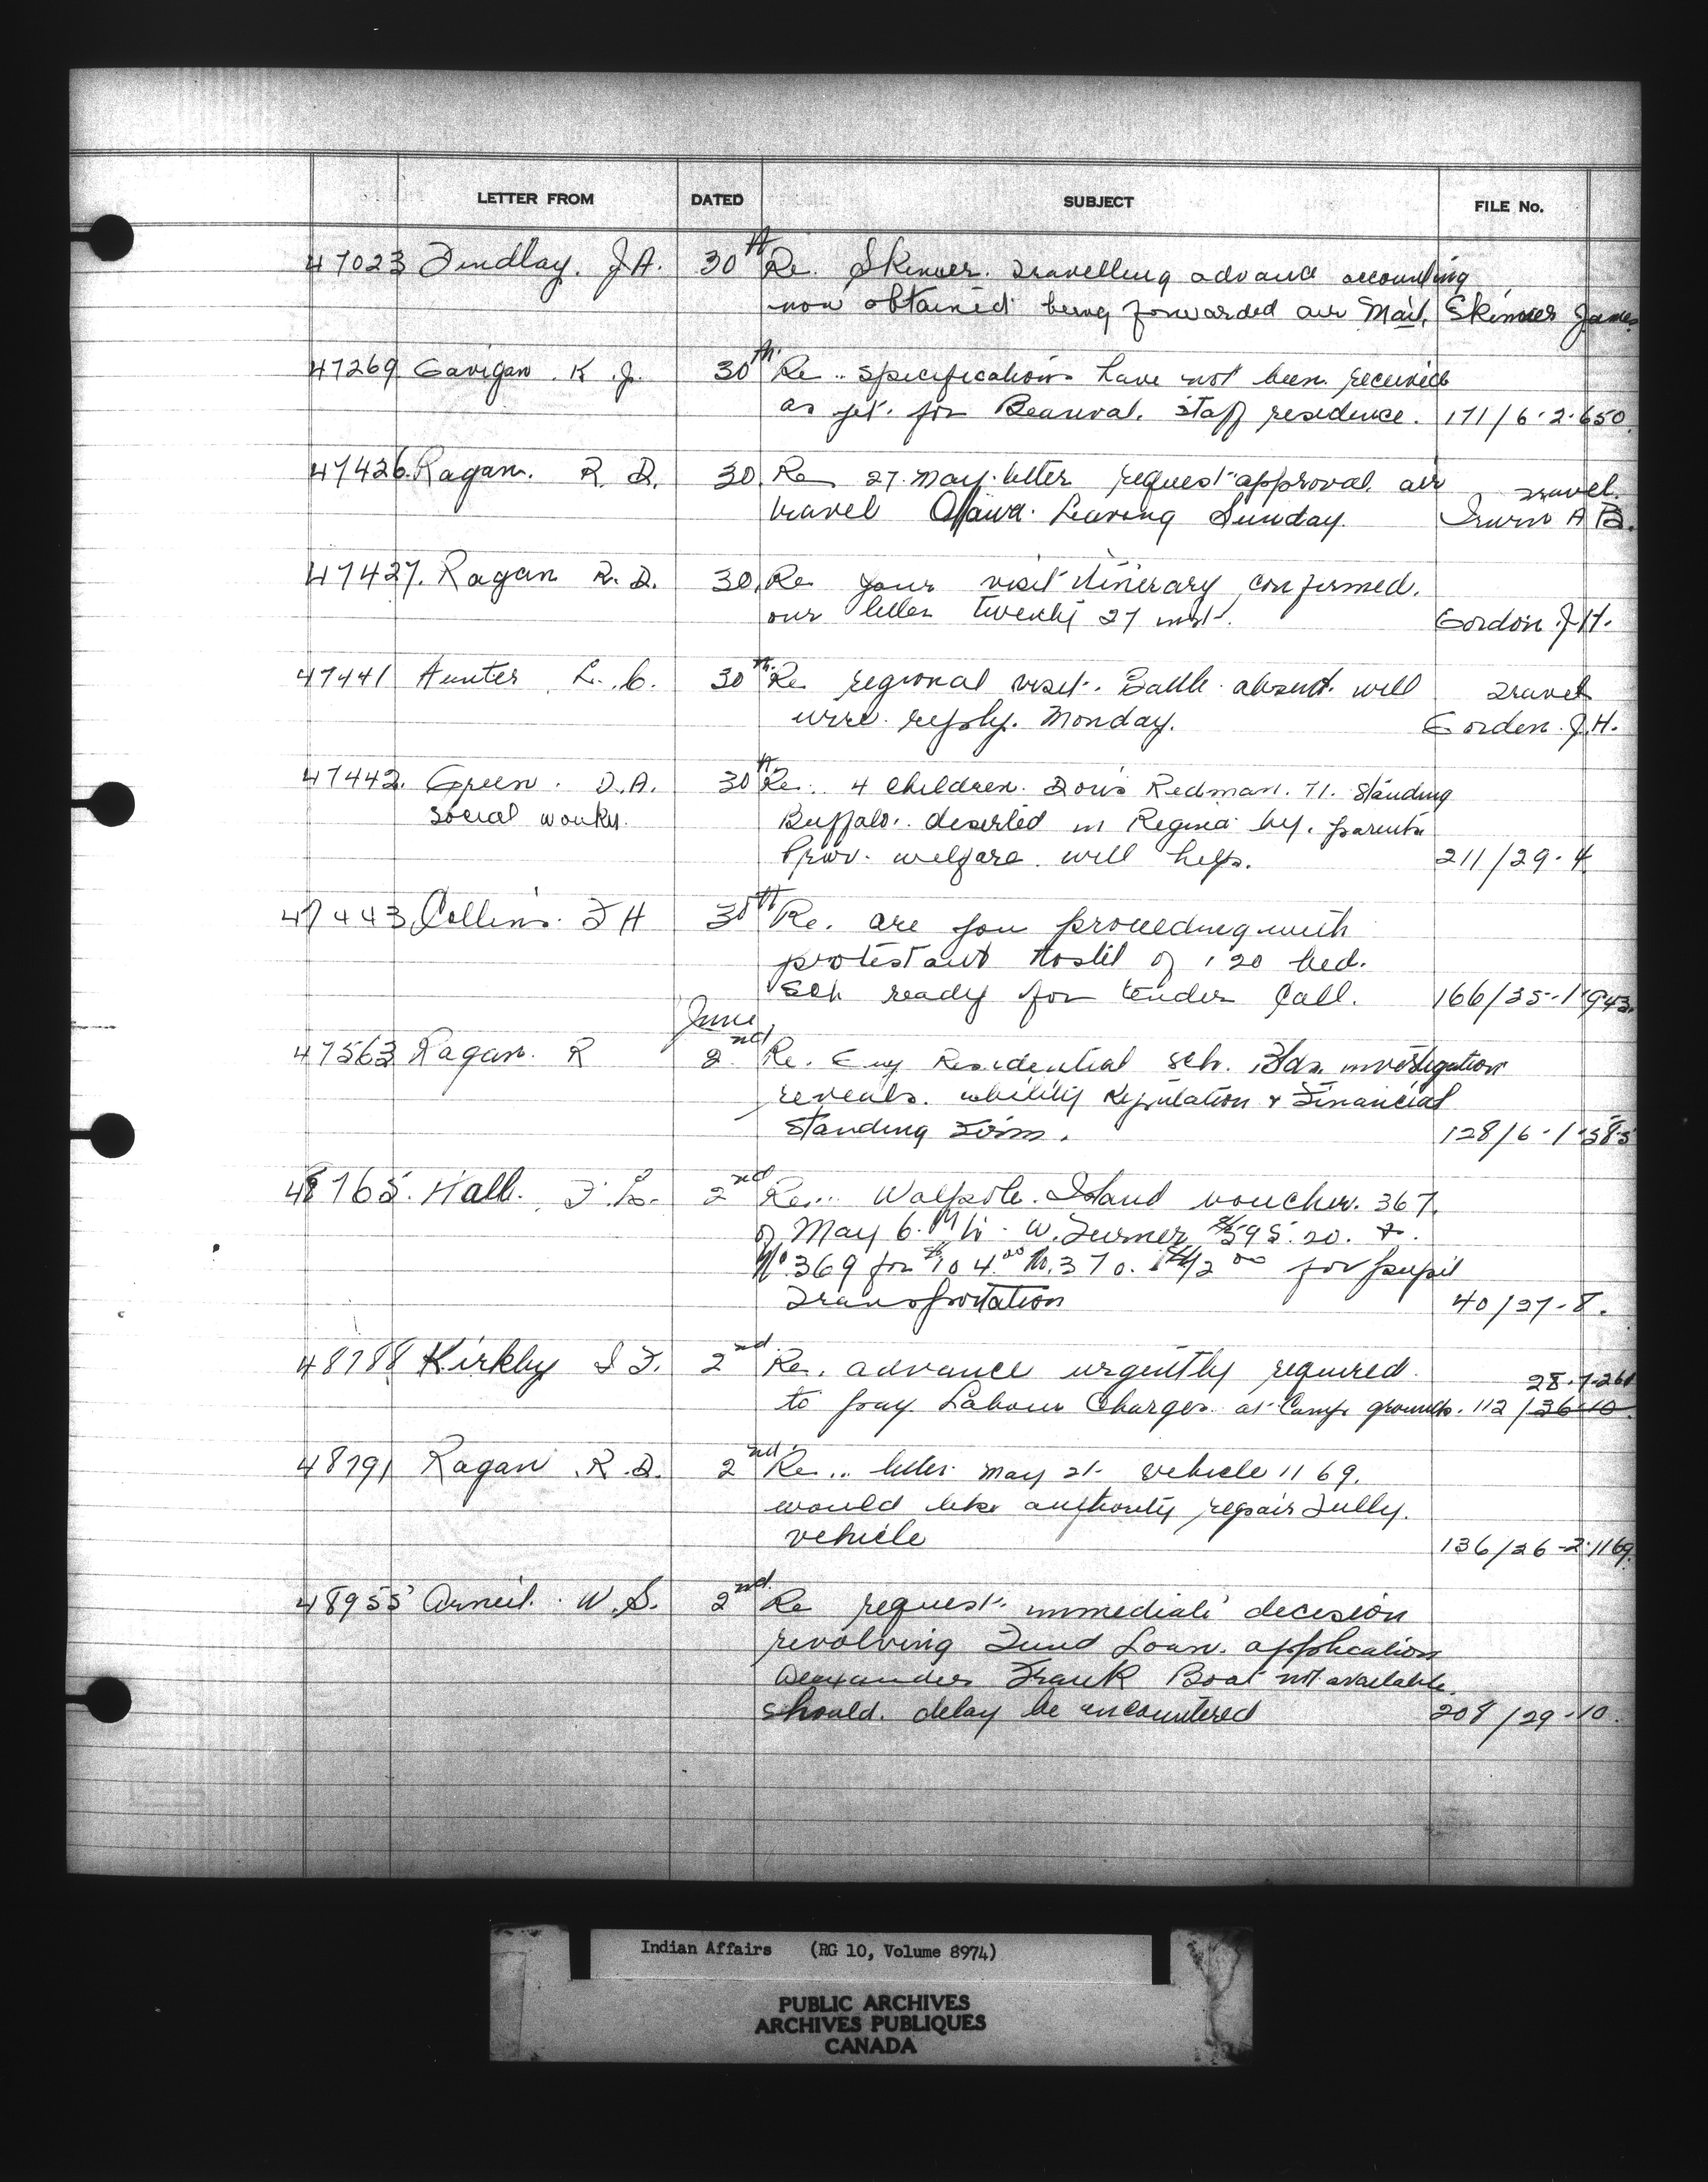 LETTER FROM DATED SUBJECT FILE No.
47023 Findlay. J.A. 30th Re. Skinner. Travelling advance accounting
now obtained being forwarded air Mail. Skinner James
47269 Gavigan. K. J. 30th. Re.. specifications have not been received
as yet. for Beauval. staff residence. 171/6-2-650.
47426. Ragan. R. D. 30. Re 27 May letter request approval air
travel.
travel Ottawa. Leaving Sunday. Irwin A B.
47427. Ragan R. D. 30. Re your visit itinerary confirmed.
our letter twenty 27 inst. Gordon. J.H.
47441 Hunter L. C. 30th. Re regional visit. Battle absent will travel
wire reply. Monday. Gordon. J.H.
47442. Green. D.A. 30th Re. 4 children. Doris Redman. 71. Standing
Social worker. Buffalo. deserted in Regina by. parents
Prov. welfare will help. 211/29-4
47443 Collins. F H 30th Re. are you proceeding with
protestant Hostel of 120 bed.
Sch ready for tender Call. 166/35-1-943.
June
47563 Ragan. R 2nd Re. Residential Sch. Bldg. investigation
reveals. ability Reputation & Financial
Standing Firm. 128/6-1-58-5
48765. Hall. F. L. 2nd Re... Walpole. Island voucher. 367.
of May 6. W. Turner $595.20. &.
No. 369 for $104.00 No. 370. for pupil
Transportation 40/27-8.
48788 Kirkby I F. 2nd. Re. advance urgently required 28-7-261
to pay Labour Charges at Camp grounds. 112/36-10.
48791 Ragan R. D. 2nd. Re... letter May 21. vehicle 1169.
would like authority repair Fully.
vehicle 136/26-2-1169.
48955 Arneil. W. S. 2nd. Re request. immediate decision
revolving Fund Loan. application
Alexander Frank Boat not available.
Should. delay be encountered 208/29-10.
Indian Affairs (RG 10, Volume 8974)
PUBLIC ARCHIVES
ARCHIVES PUBLIQUES
CANADA